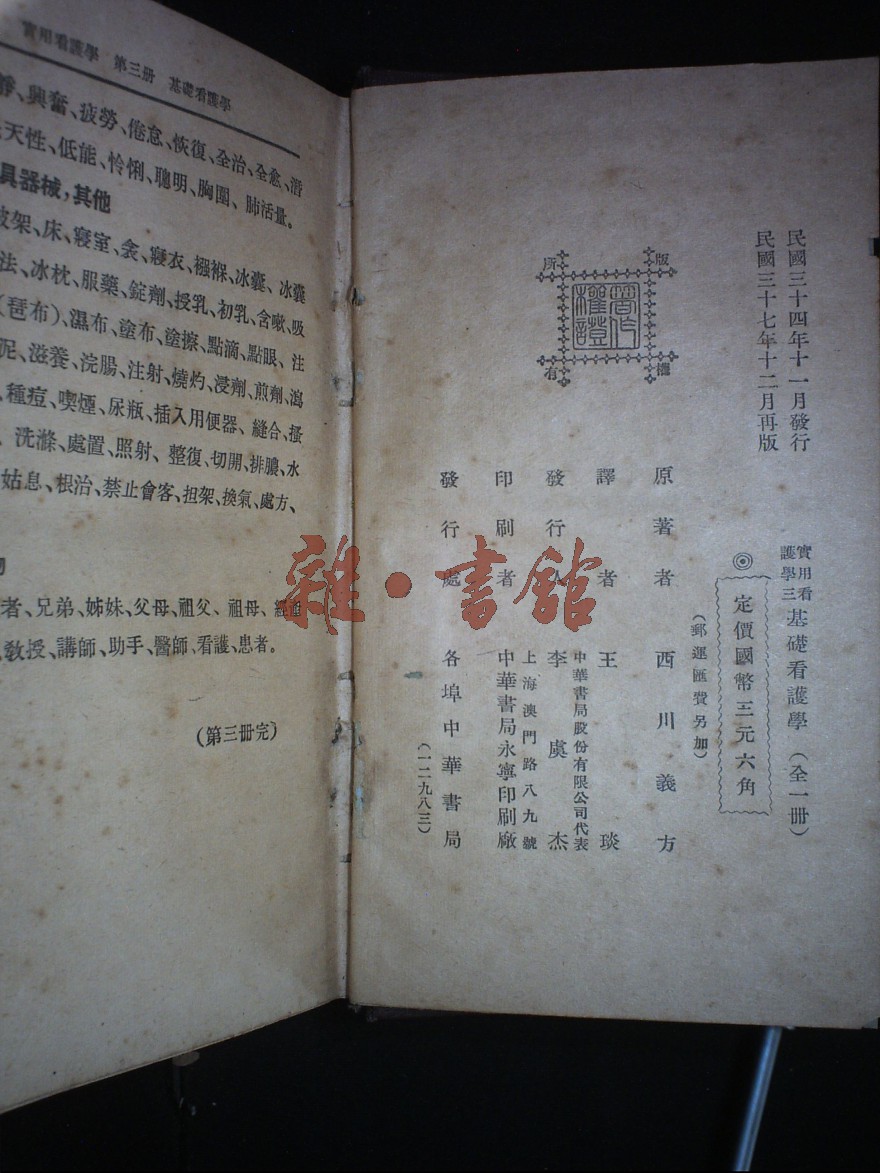 實用看護學 第三册 基礎看護學
興奮、疲勞、倦怠、恢復、全治、全愈、潛
天性、低能、怜悧、聰明、胸圍、肺活量。
具器械，其他
架、床、寢室、衾、寢衣、襁褓、冰囊、冰囊
法、冰枕、服藥、錠劑、授乳、初乳、含嗽、吸
(琶布)、濕布、塗布、塗擦、點滴、點眼、注
泥、滋養、浣腸、注射、燒灼、浸劑、煎劑、瀉
、種痘、喫煙、尿瓶、插入用便器、縫合、搔
、洗滌、處置、照射、整復、切開、排膿、水
姑息、根治、禁止會客、担架、換氣、處方、
者、兄弟、姊妹、父母、祖父、祖母、
教授、講師、助手、醫師、看護、患者。
(第三册完)
民國三十四年十一月發行
民國三十七年十二月再版
版權所有
著作權證
實用看護學三 基礎看護學 (全一册)
◎ 定價國幣三元六角
(郵運匯費另加)
原著者 西川義方
譯者 王琰
中華書局股份有限公司代表
發行人 李虞杰
上海澳門路八九號
印刷者 中華書局永寧印刷廠
發行處 各埠中華書局
(一二九八三)
雜·書館